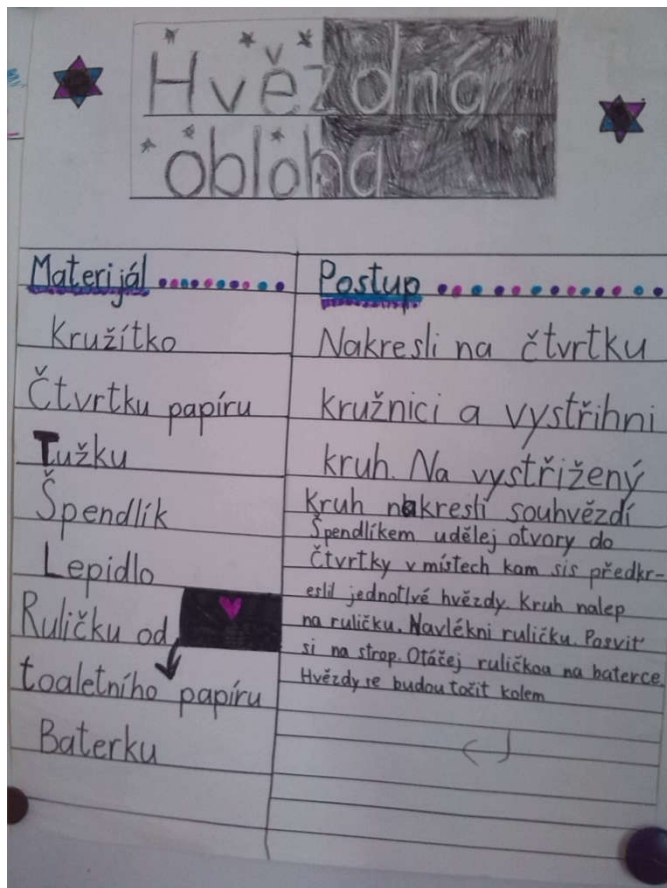 Hvězdná
obloha
Materijál
Kružítko
Čtvrtku papíru
Tužku
Špendlík
Lepidlo
Ruličku od
toaletního papíru
Baterku
Postup
Nakresli na čtvrtku
kružnici a vystřihni
kruh. Na vystřižený
Kruh nakresli souhvězdí
Špendlíkem udělej otvory do
Čtvrtky v místech kam sis předkr-
eslil jednotlvé hvězdy. Kruh nalep
na ruličku. Navlékni ruličku. Posviť
si na strop. Otáčej ruličkou na baterce.
Hvězdy se budou točit kolem